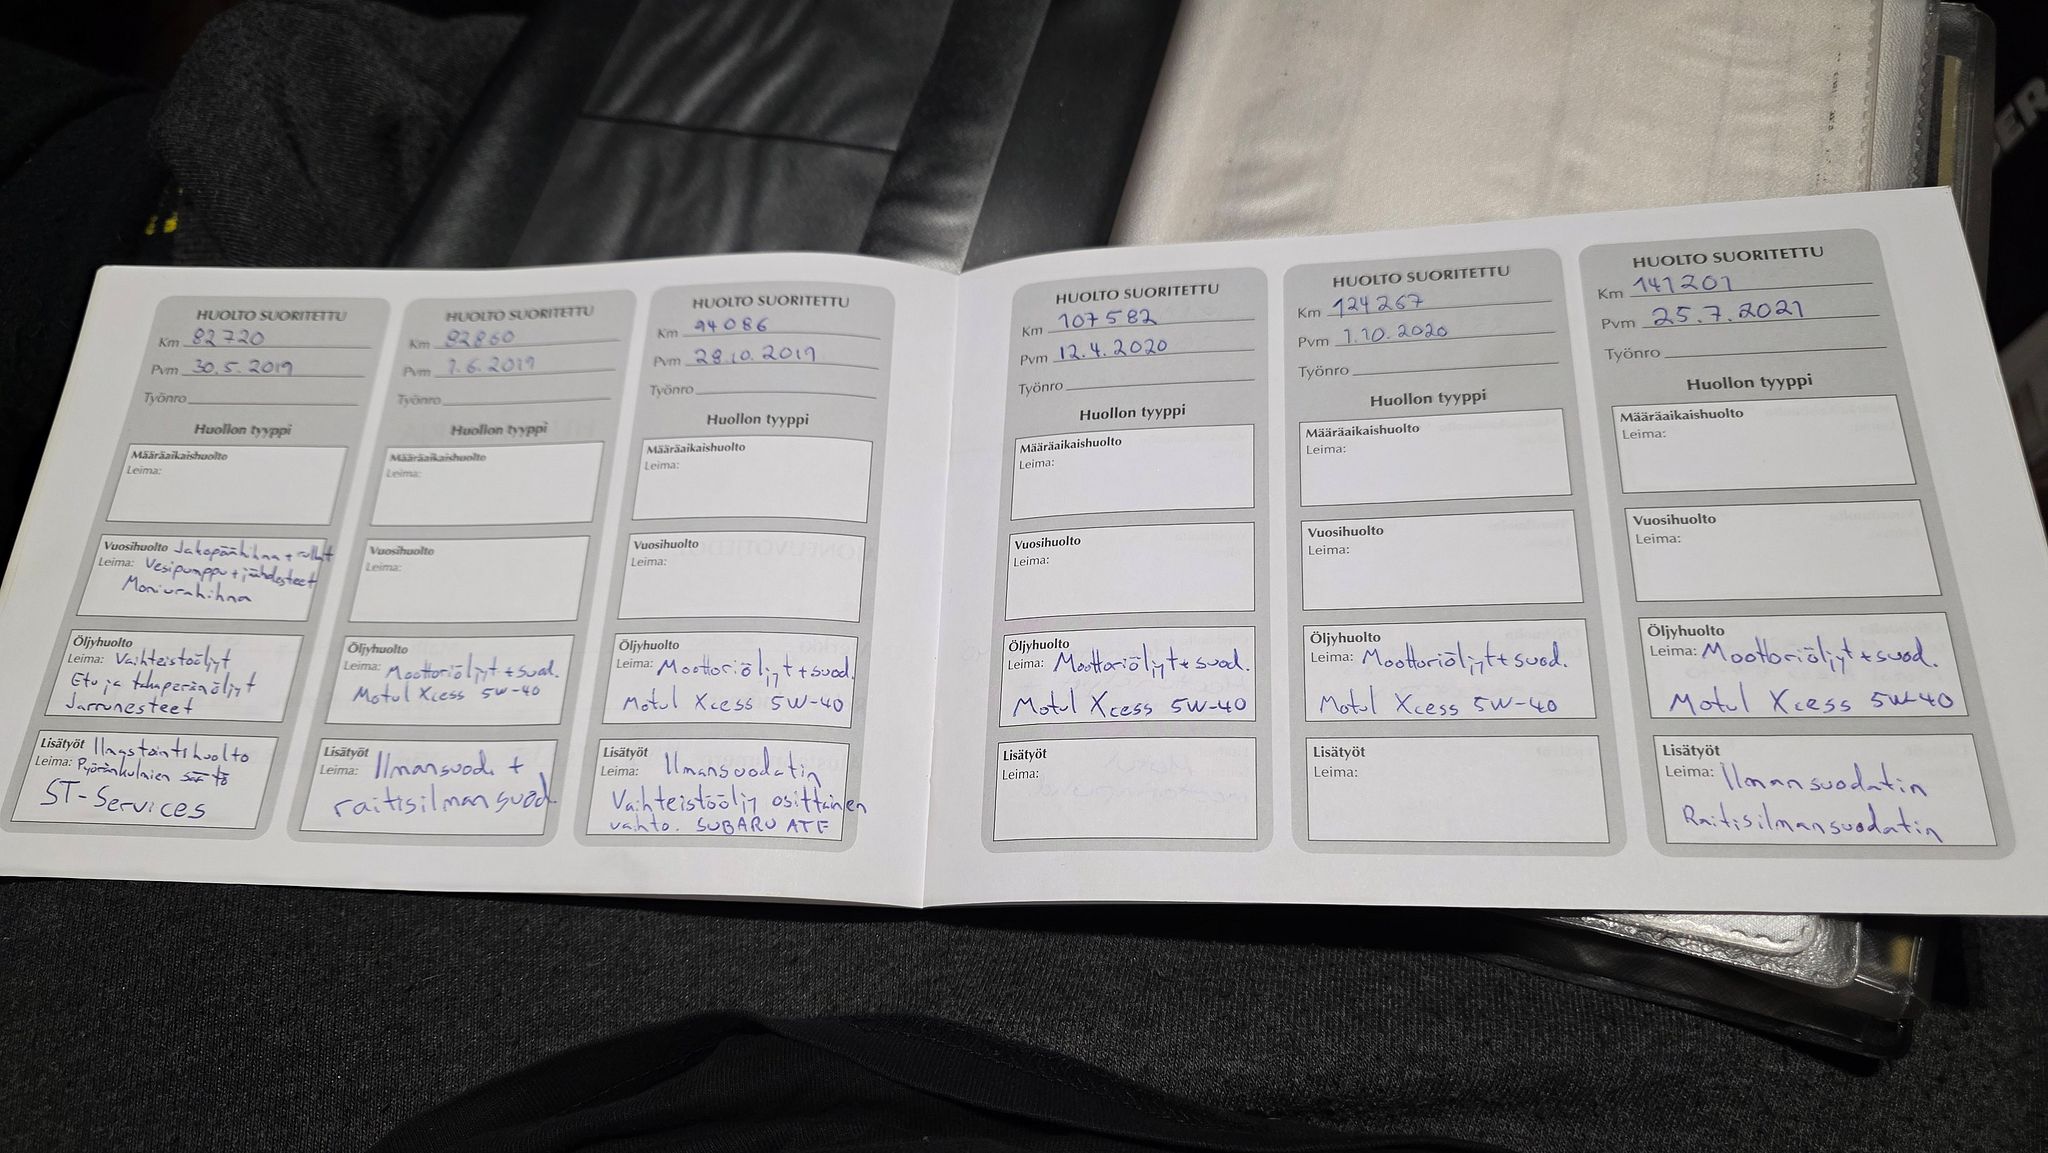 HUOLTO SUORITETTU
Km 82720
Pvm 30.5.2019
Työnro
Huollon tyyppi
Määräaikaishuolto
Leima:
Vuosihuolto Jakopäähihna + rullat
Leima: Vesipumppu + jäähdesteet
Moniurahihna
Öljyhuolto
Leima: Vaihteistoöljyt
Etu ja takaperänöljyt
Jarrunesteet
Lisätyöt Ilmastointihuolto
Leima: Pyöränkulmien säätö
ST-Services
HUOLTO SUORITETTU
Km 82860
Pvm 1.6.2019
Työnro
Huollon tyyppi
Määräaikaishuolto
Leima:
Vuosihuolto
Leima:
Öljyhuolto
Leima: Moottoriöljyt + suod.
Motul Xcess 5W-40
Lisätyöt
Leima: Ilmansuod. +
raitisilmansuod.
HUOLTO SUORITETTU
Km 94086
Pvm 28.10.2019
Työnro
Huollon tyyppi
Määräaikaishuolto
Leima:
Vuosihuolto
Leima:
Öljyhuolto
Leima: Moottoriöljyt + suod.
Motul Xcess 5W-40
Lisätyöt
Leima: Ilmansuodatin
Vaihteistööljy osittainen
vaihto. SUBARU ATF
HUOLTO SUORITETTU
Km 107582
Pvm 12.4.2020
Työnro
Huollon tyyppi
Määräaikaishuolto
Leima:
Vuosihuolto
Leima:
Öljyhuolto
Leima: Moottoriöljyt + suod.
Motul Xcess 5W-40
Lisätyöt
Leima:
HUOLTO SUORITETTU
Km 124267
Pvm 1.10.2020
Työnro
Huollon tyyppi
Määräaikaishuolto
Leima:
Vuosihuolto
Leima:
Öljyhuolto
Leima: Moottoriöljyt + suod.
Motul Xcess 5W-40
Lisätyöt
Leima:
HUOLTO SUORITETTU
Km 141201
Pvm 25.7.2021
Työnro
Huollon tyyppi
Määräaikaishuolto
Leima:
Vuosihuolto
Leima:
Öljyhuolto
Leima: Moottoriöljyt + suod.
Motul Xcess 5W-40
Lisätyöt
Leima: Ilmansuodatin
Raitisilmansuodatin